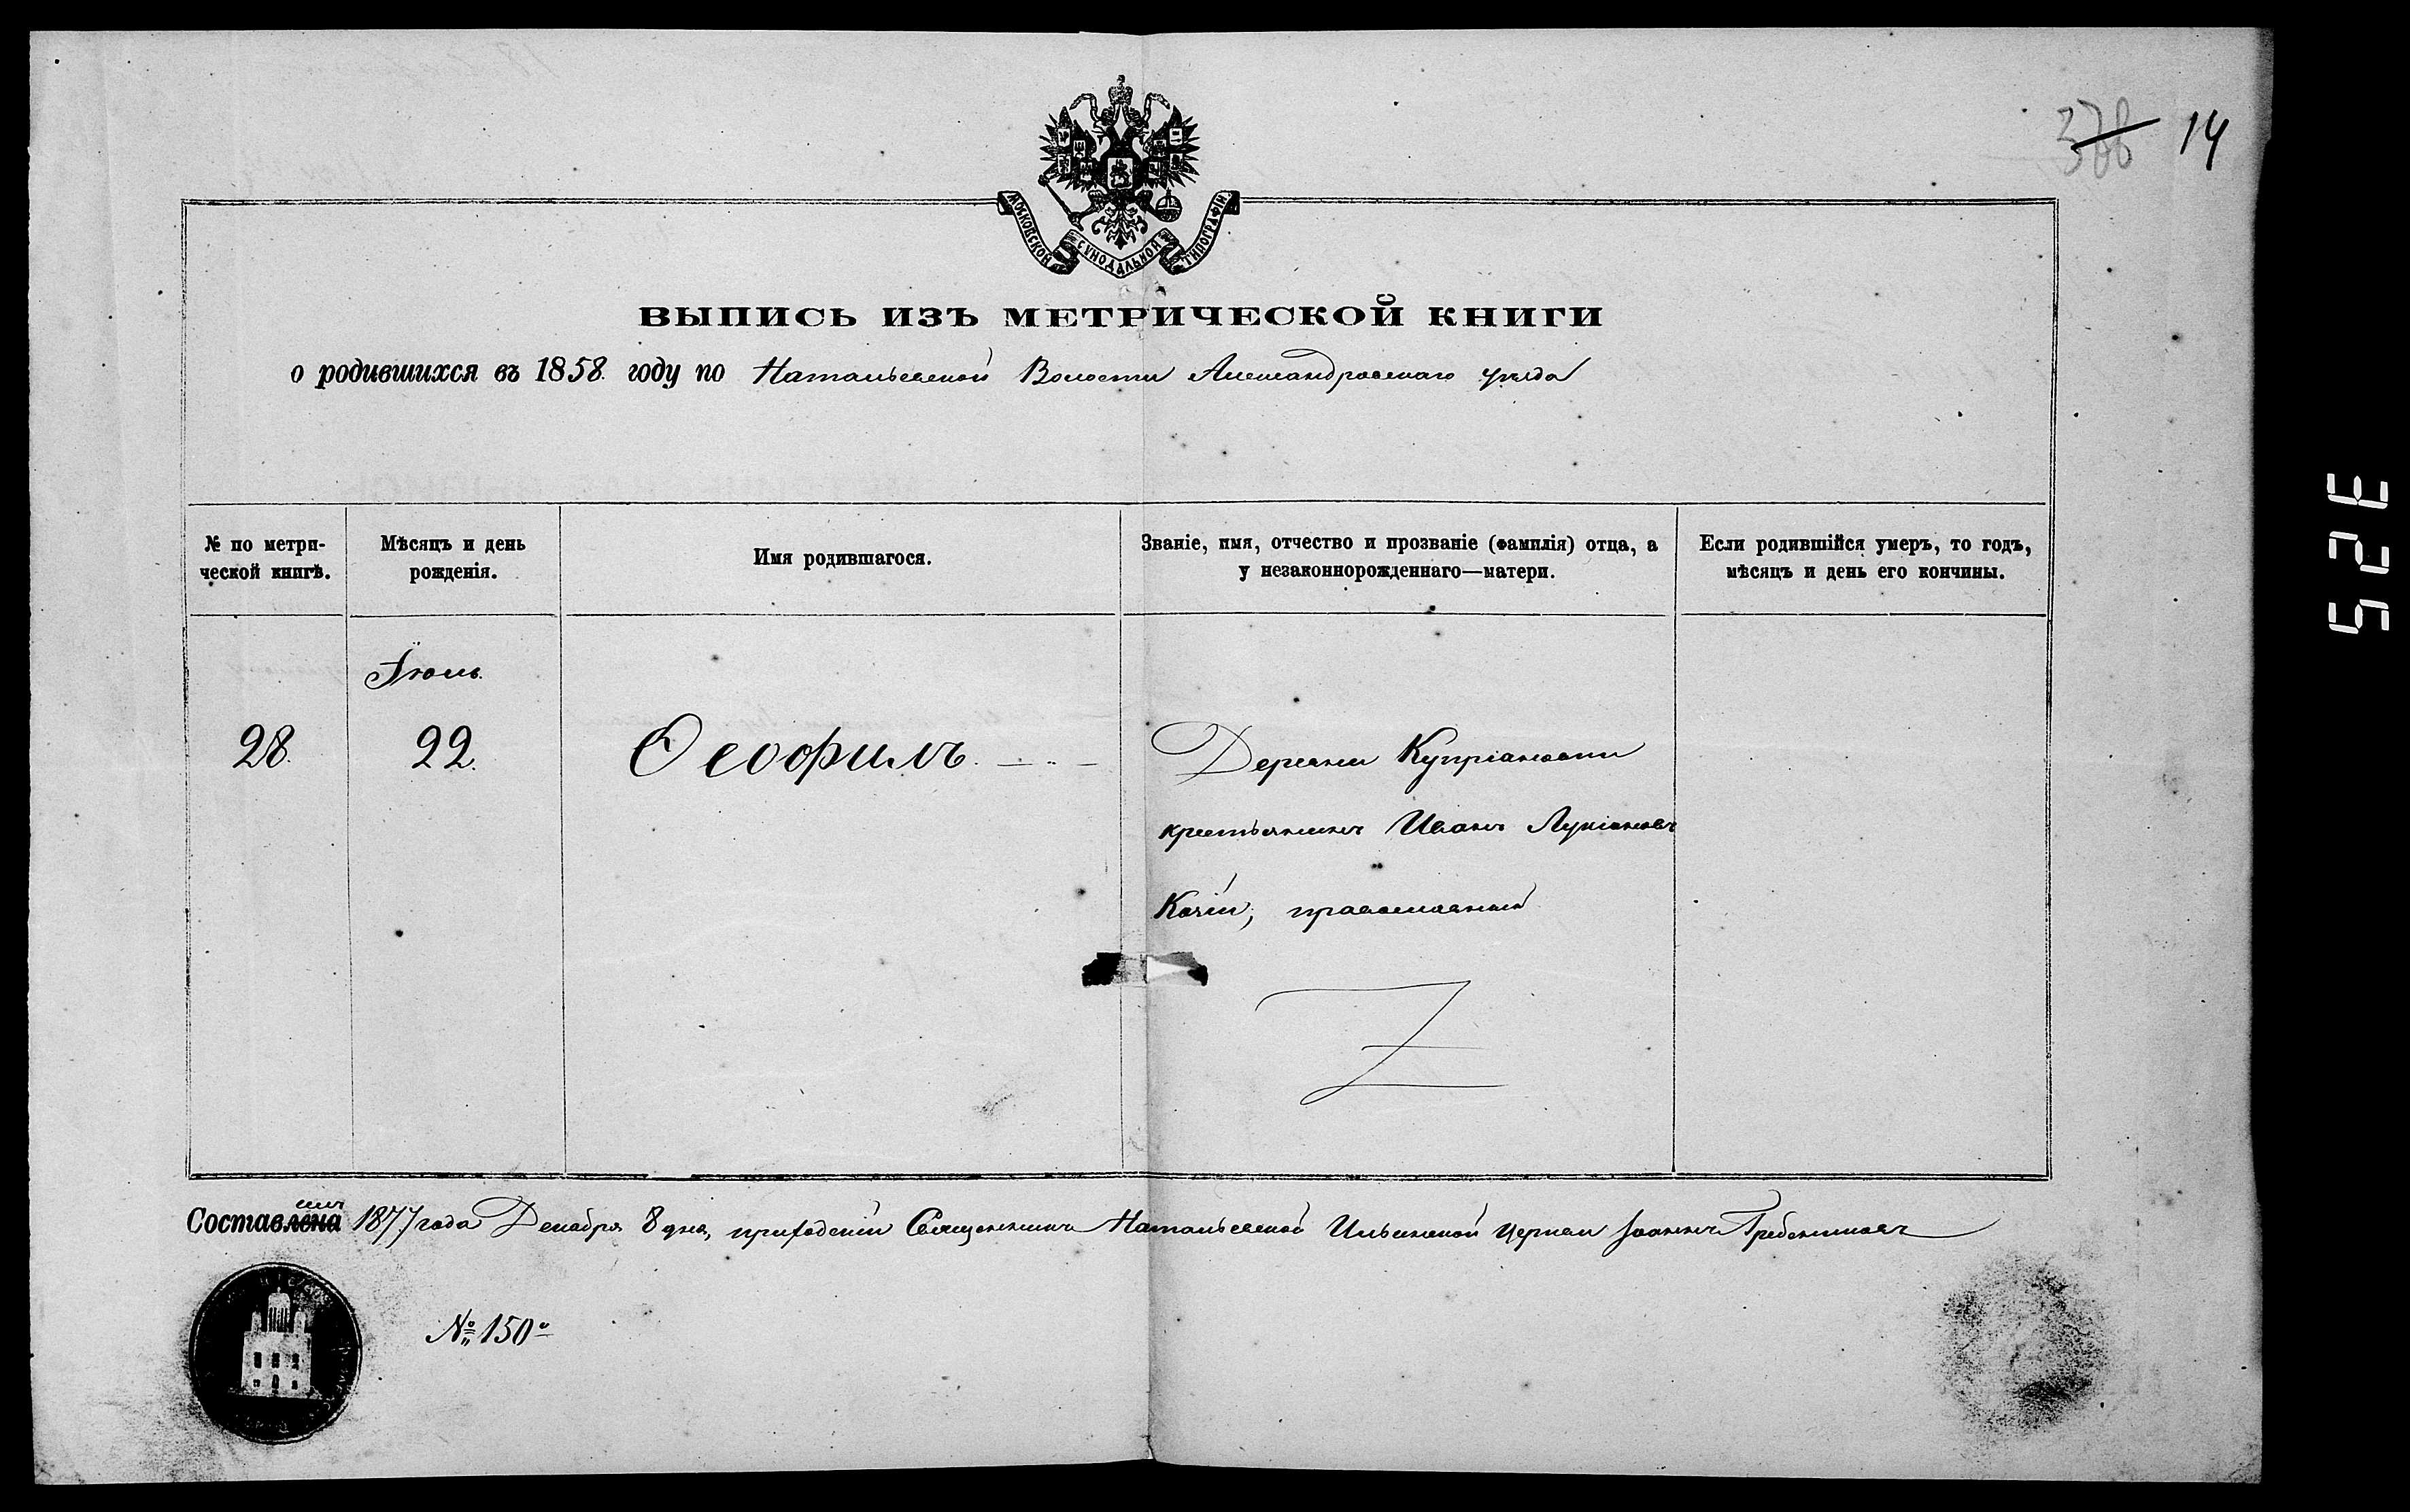 378 14
МОСКОВСКОЙ СУНОДАЛЬНОЙ ТИПОГРАФІИ
ВЫПИСЬ ИЗЪ МЕТРИЧЕСКОЙ КНИГИ
о родившихся въ 1858 году по Натальевской Волости Александровскаго уѣзда
№ по метри-
ческой книгѣ.
Мѣсяцъ и день
рожденія.
Имя родившагося.
Званіе, имя, отчество и прозваніе (фамилія) отца, а
у незаконнорожденнаго—матери.
Если родившійся умеръ, то годъ,
мѣсяцъ и день его кончины.
Іюль.
28. 22. Ѳеофилъ. Деревни Купріяновки
крестьянинъ Иванъ Лукіяновъ
Качій, православный
Составлена 1877 года Декабря 8 дня, приходскій Священникъ Натальевской Ильинской Церкви Іоаннъ Гребенниковъ
№ 150
52E